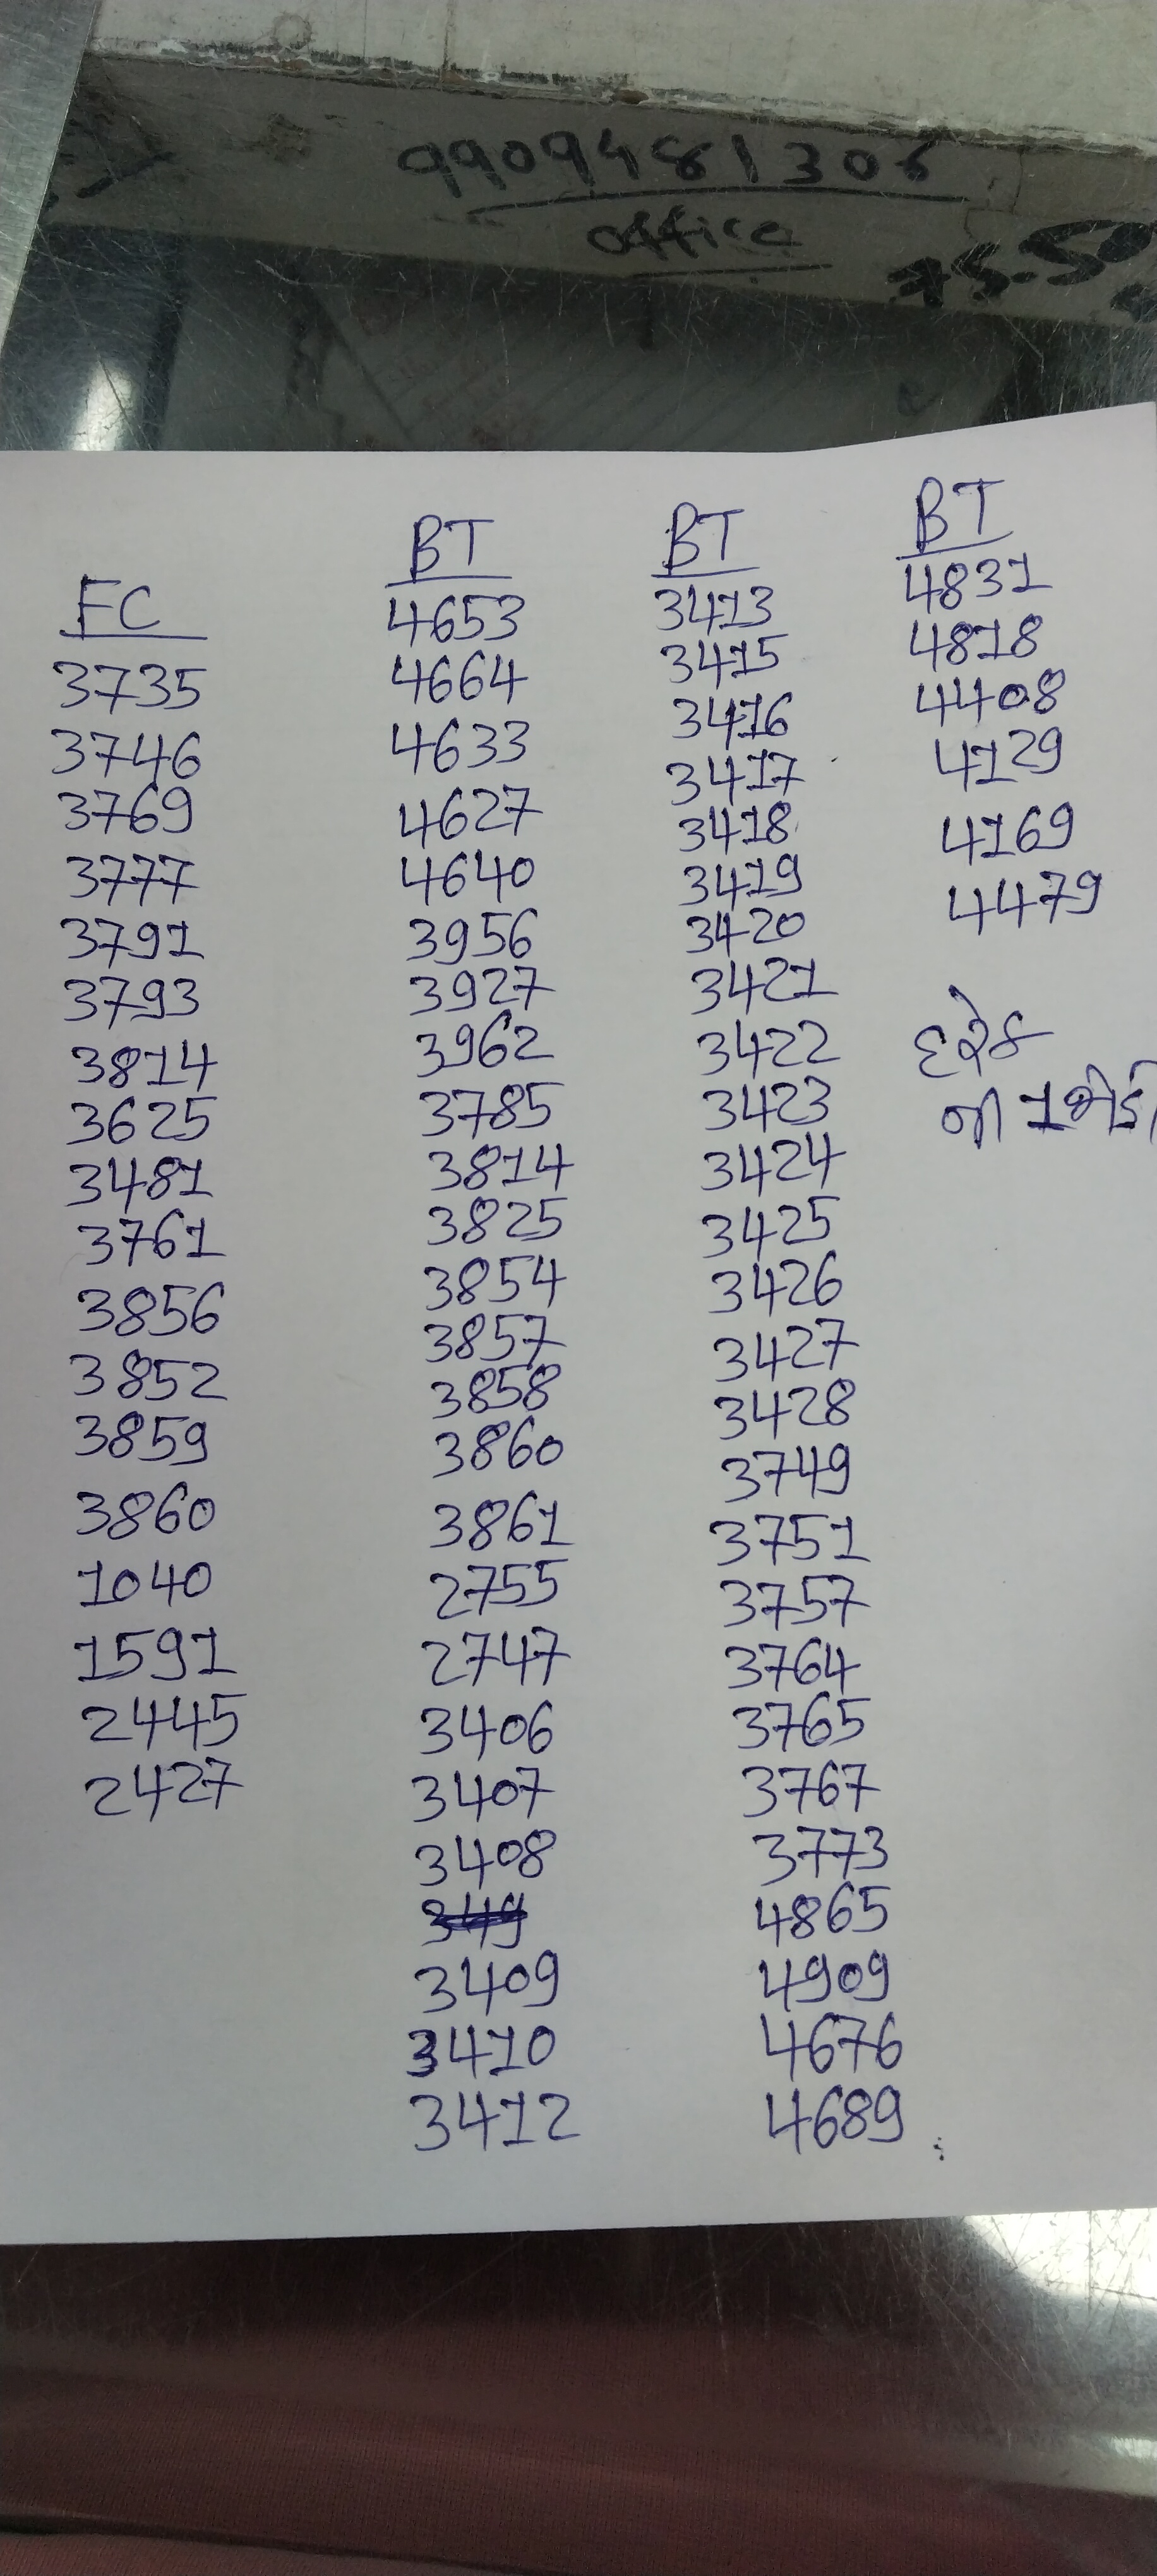 9909481306
office
75.50
FC
3735
3746
3769
3777
3791
3793
3814
3625
3481
3761
3856
3852
3859
3860
1040
1591
2445
2427
BT
4653
4664
4633
4627
4640
3956
3927
3962
3785
3814
3825
3854
3857
3858
3860
3861
2755
2747
3406
3407
3408
349
3409
3410
3412
BT
3413
3415
3416
3417
3418
3419
3420
3421
3422
3423
3424
3425
3426
3427
3428
3749
3751
3757
3764
3765
3767
3773
4865
4909
4676
4689
BT
4831
4818
4408
4129
4169
4479
દરેક
ની 1 જોડી